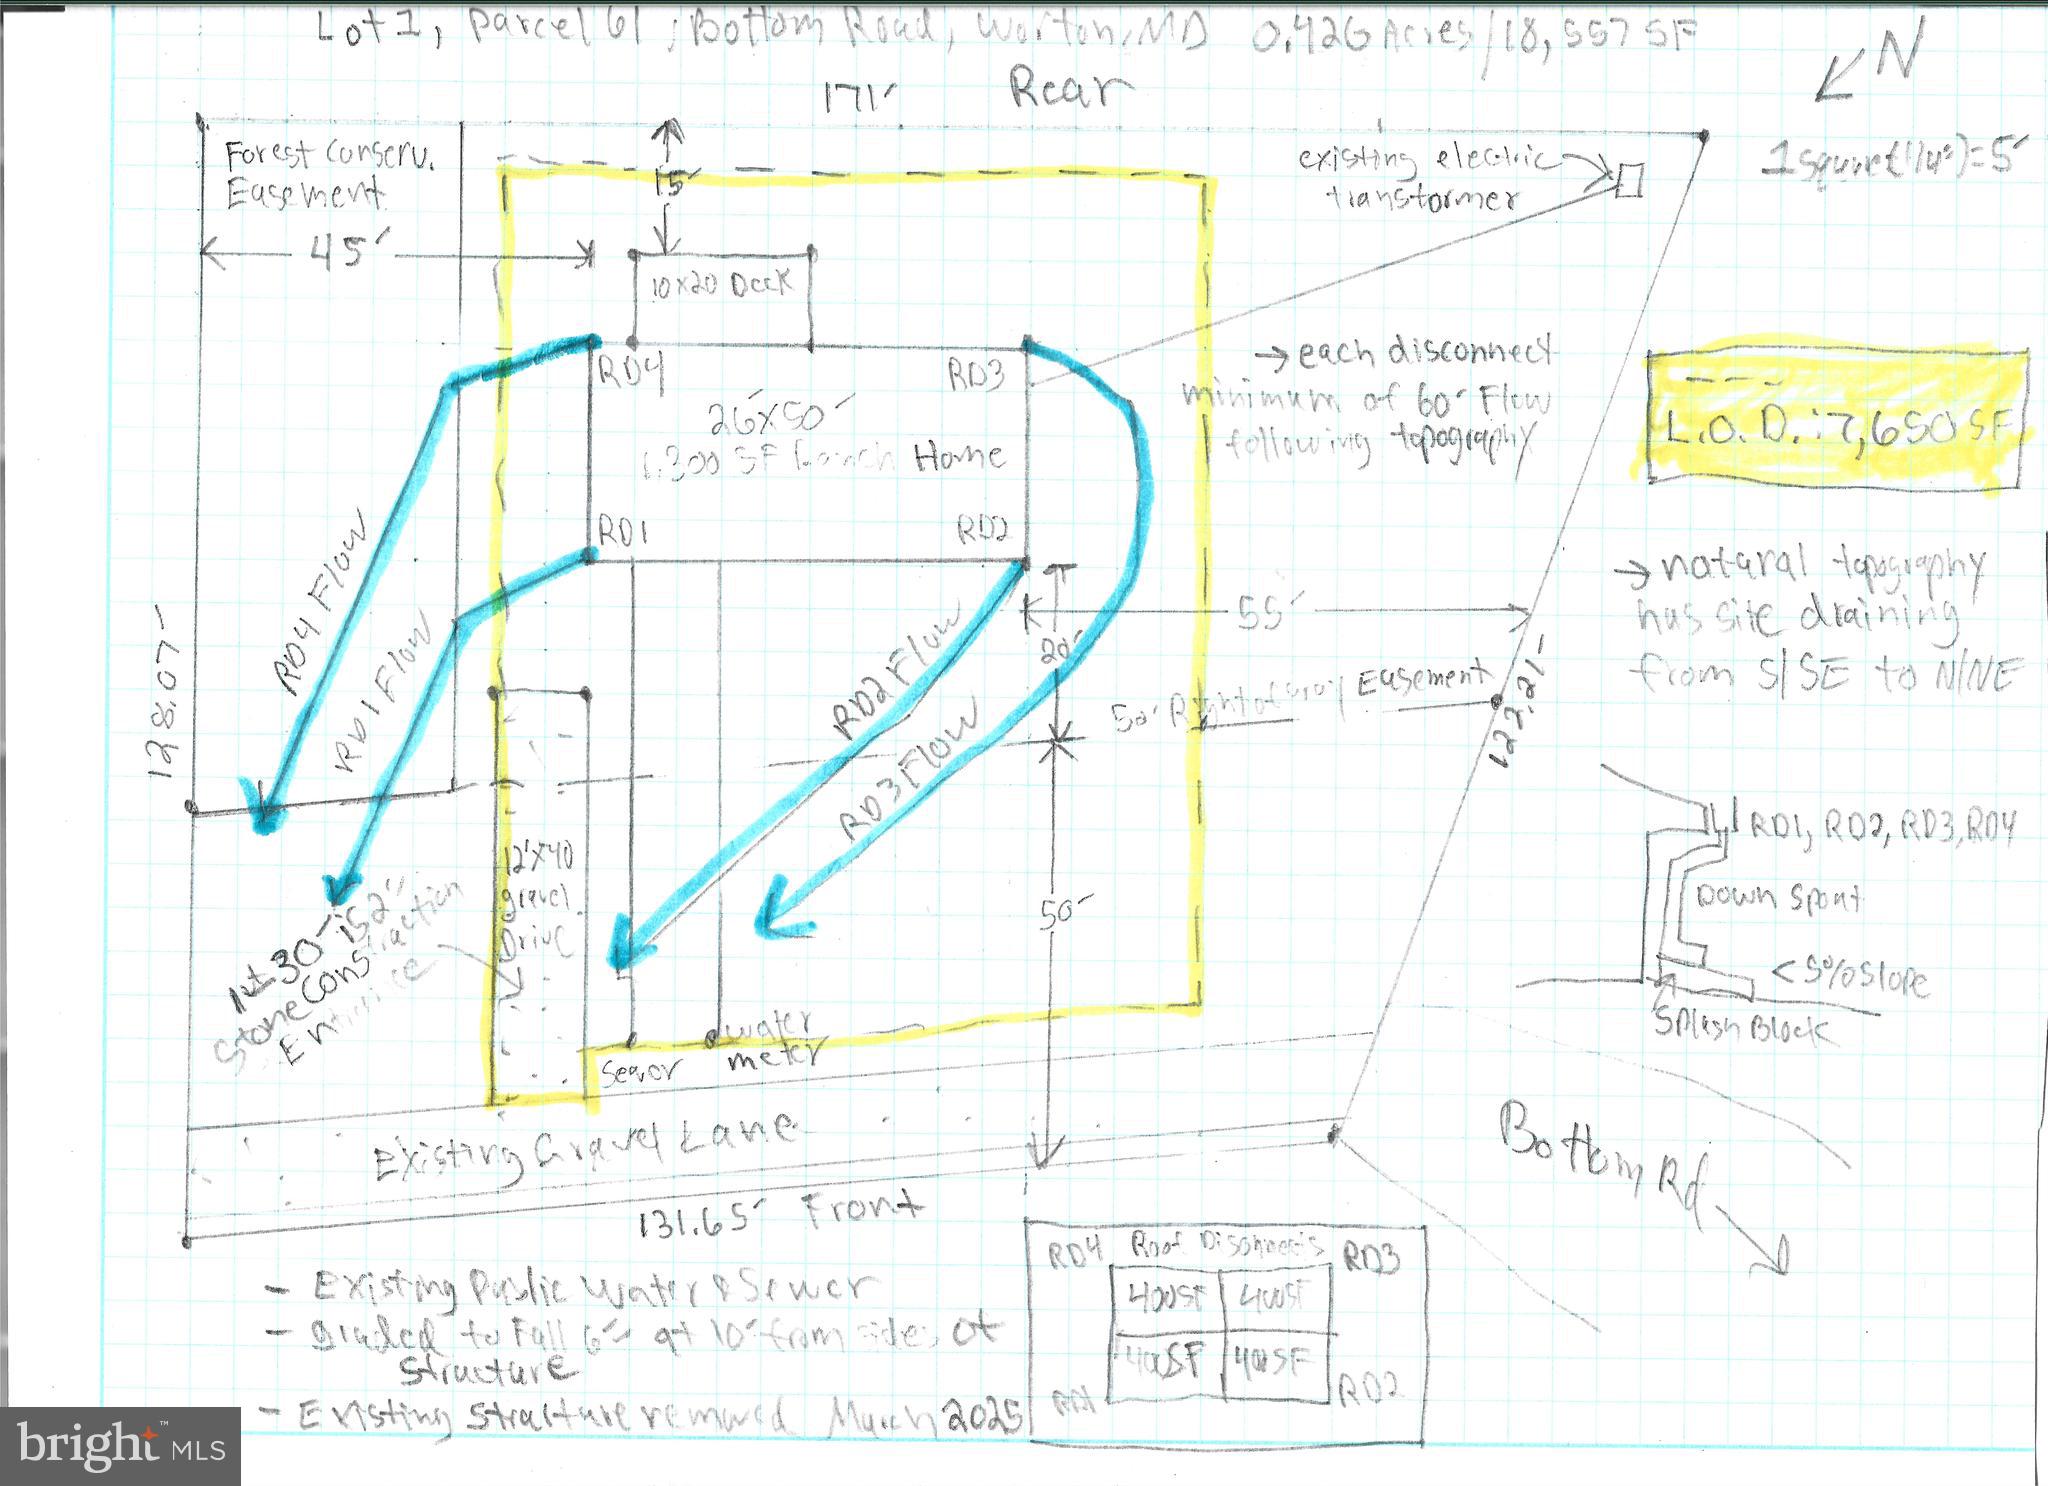 Lot 1, Parcel 61, Bottom Road, Worton, MD 0.426 Acres/18,557 SF
N
171' Rear
Forest Conserv.
Easement
existing electric
transformer
1 square (1/4") = 5'
15'
45'
10x20 Deck
RD4
RD3
→ each disconnect
minimum of 60' Flow
following topography
26'x50'
1,300 SF Ranch Home
L.O.D.: 7,650 SF
RD1
RD2
RD4 Flow
RD1 Flow
RD2 Flow
RD3 Flow
55'
20'
→ natural topography
has site draining
from S/SE to N/NE
128.07'
50' Right of way Easement
122.21'
RD1, RD2, RD3, RD4
Down Spout
<5% Slope
Splash Block
12'x40
gravel
Drive
50'
1st 30' is 2"
Stone Construction
Entrance
Sewer
water
meter
Existing Gravel Lane
Bottom Rd
131.65' Front
- Existing Public Water & Sewer
- Graded to Fall 6" at 10' from sides of
structure
- Existing structure removed March 2025
RD4 Roof Disconnects RD3
400SF 400SF
400SF 400SF
RD1 RD2
bright™ MLS